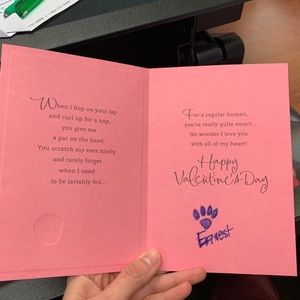 When I hop on your lap
and curl up for a nap,
you give me
a pat on the head.
You scratch my ears nicely
and rarely forget
when I need
to be lavishly fed...
For a regular human,
you're really quite smart...
No wonder I love you
with all of my heart!
Happy
Valentine's Day
Ernest